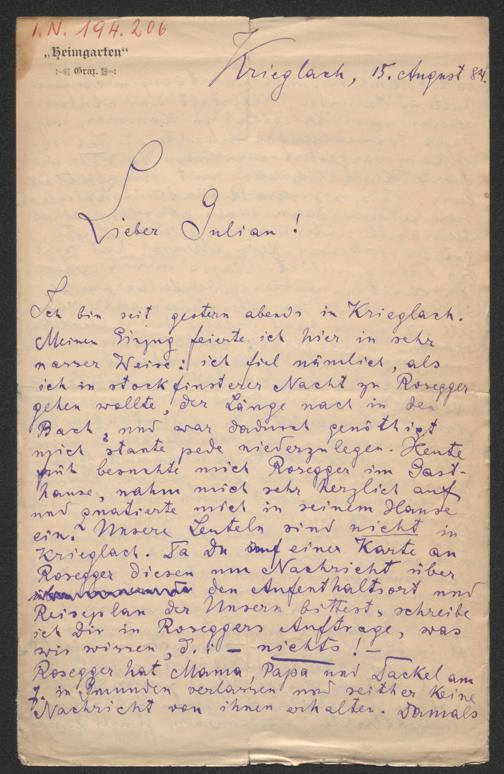 I.N. 194.206
„Heimgarten“
Graz.
Krieglach, 15. August 84.
Lieber Julian!
Ich bin seit gestern abends in Krieglach.
Meinen Einzug feierte ich hier in sehr
nasser Weise: ich fiel nämlich, als
ich in stockfinsterer Nacht zu Rosegger
gehen wollte, der Länge nach in den
Bach, und war dadurch genöthigt
mich stante pede niederzulegen. Heute
früh besuchte mich Rosegger im Gast-
hause, nahm mich sehr herzlich auf
und quatierte mich in seinem Hause
ein. Unsere Leuteln sind nicht in
Krieglach. Da Du auf einer Karte an
Rosegger diesen um Nachricht über
den Aufenthaltsort und
Reiseplan der Unsern bittest, schreibe
ich Dir in Roseggers Auftrage, was
wir wissen, d. i. – nichts! –
Rosegger hat Mama, Papa und Dackel am
7. in Gmunden verlassen und seither keine
Nachricht von ihnen erhalten. Damals